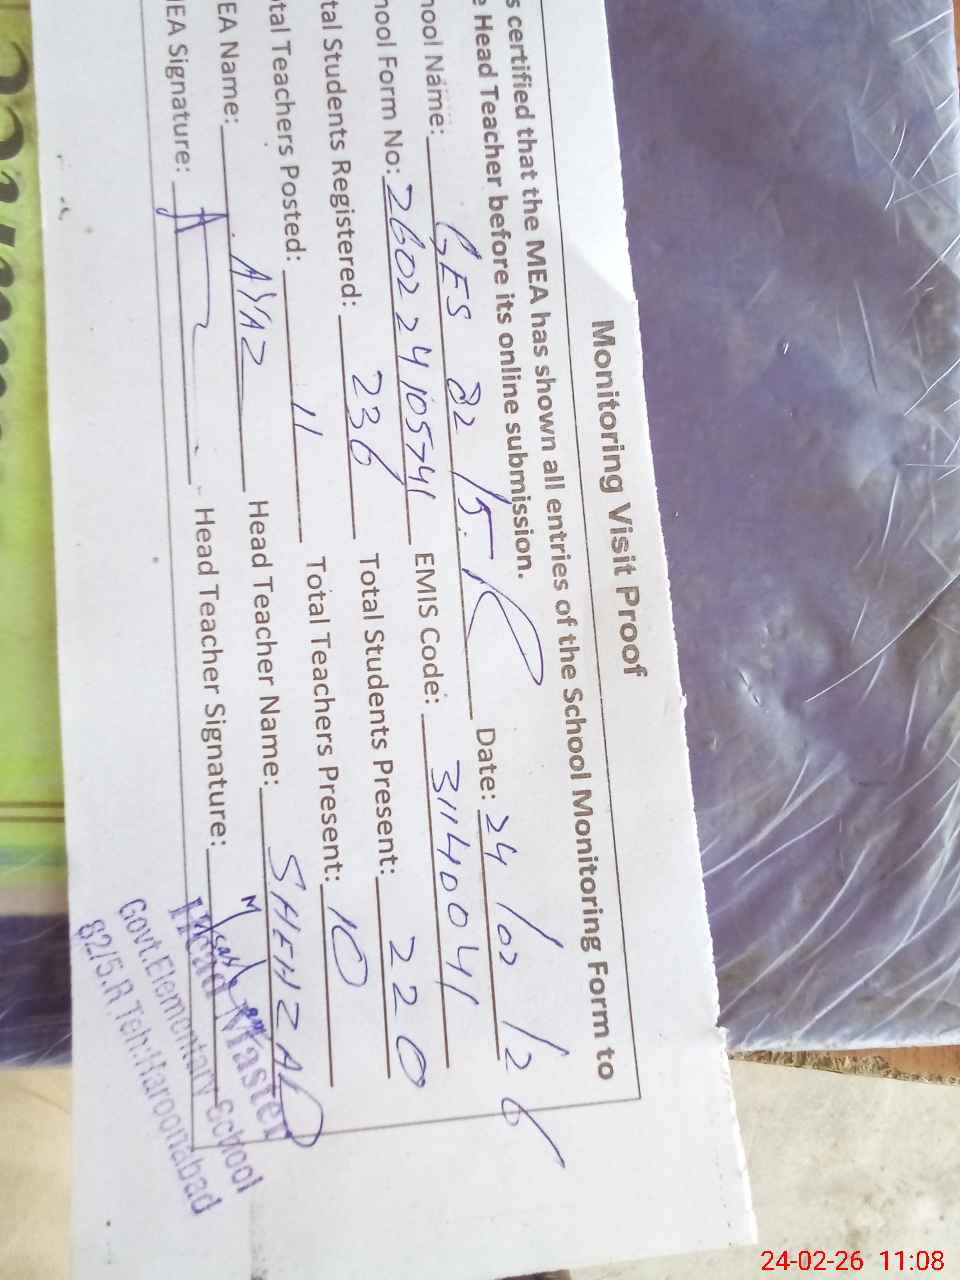 Monitoring Visit Proof
s certified that the MEA has shown all entries of the School Monitoring Form to
e Head Teacher before its online submission.
hool Name: GES 82/5R Date: 24/02/26
hool Form No: 26022410574 EMIS Code: 31140041
tal Students Registered: 236 Total Students Present: 220
tal Teachers Posted: 11 Total Teachers Present: 10
EA Name: AYAZ Head Teacher Name: SHEHZAD
EA Signature: Head Teacher Signature:
Head Master
Govt.Elementary School
82/5.R.Teh:Haroonabad
24-02-26 11:08